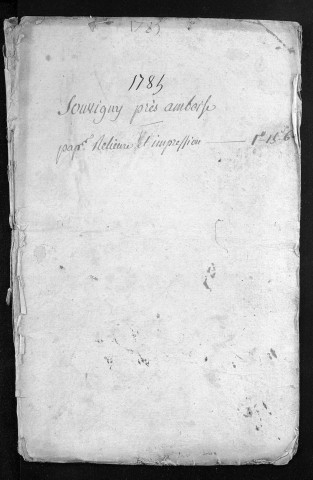 1785
1785
Souvigny près amboise
pap.r Relieure et impression — 1# 18s 6